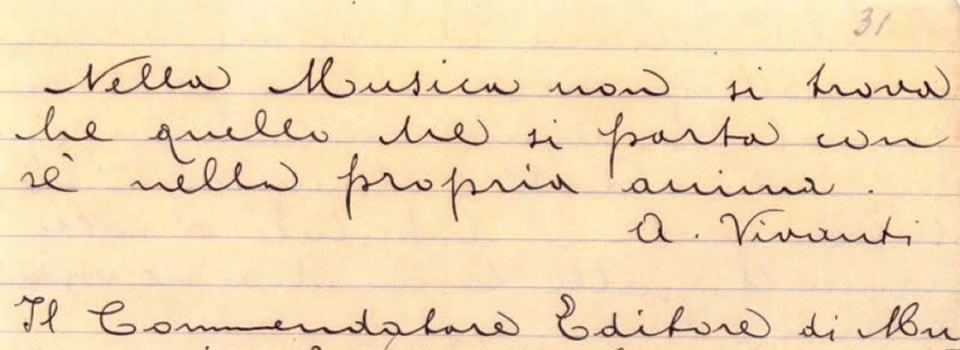 31
Nella Musica non si trova
che quello che si porta con
sè nella propria anima.
A. Vivanti
Il Commendatore Editore di Mu